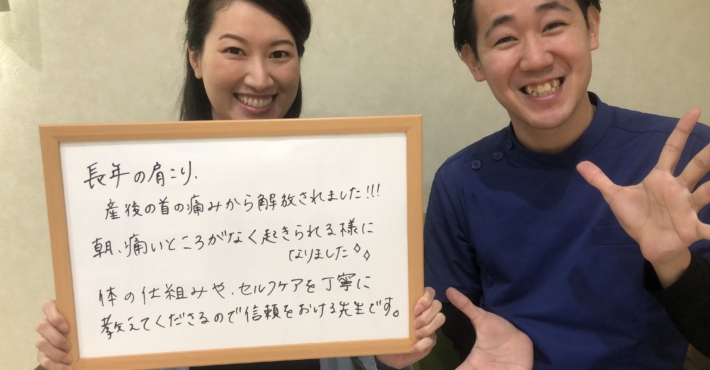 長年の肩こり、
産後の首の痛みから解放されました!!!
朝、痛いところがなく起きられる様に
なりました
体の仕組みや、セルフケアを丁寧に
教えてくださるので信頼をおける先生です。